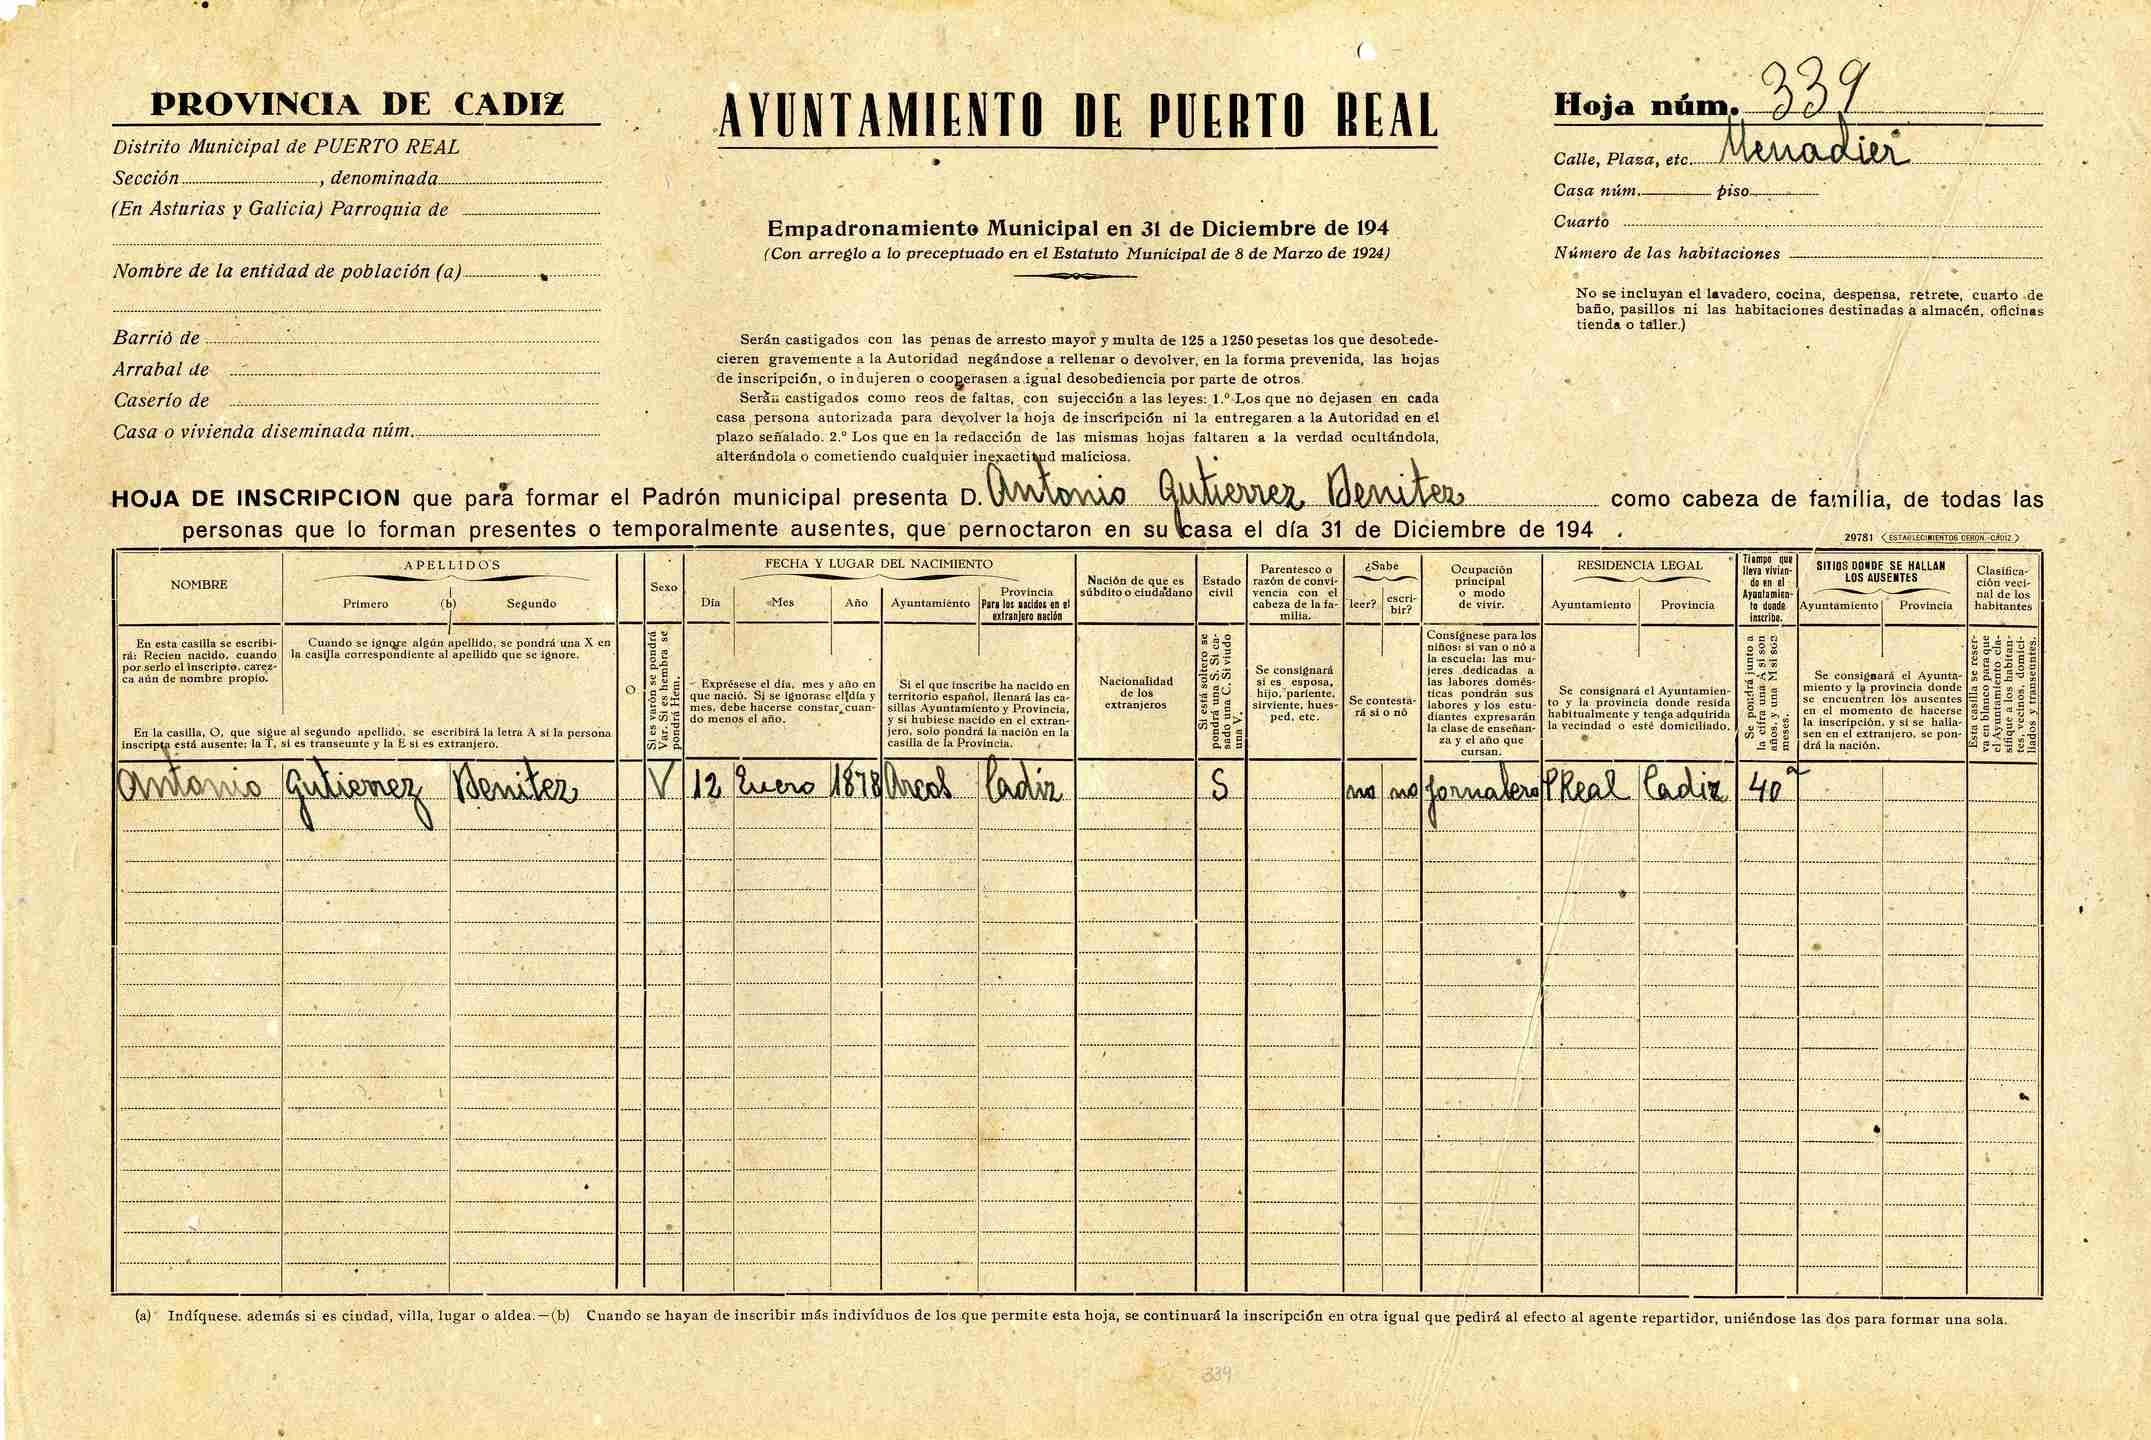 PROVINCIA DE CADIZ
Distrito Municipal de PUERTO REAL
Sección , denominada
(En Asturias y Galicia) Parroquia de
Nombre de la entidad de población (a)
Barrio de
Arrabal de
Caserío de
Casa o vivienda diseminada núm.
AYUNTAMIENTO DE PUERTO REAL
Empadronamiento Municipal en 31 de Diciembre de 194
(Con arreglo a lo preceptuado en el Estatuto Municipal de 8 de Marzo de 1924)
Serán castigados con las penas de arresto mayor y multa de 125 a 1250 pesetas los que desobede-
cieren gravemente a la Autoridad negándose a rellenar o devolver, en la forma prevenida, las hojas
de inscripción, o indujeren o cooperasen a igual desobediencia por parte de otros.
Serán castigados como reos de faltas, con sujección a las leyes: 1.º Los que no dejasen en cada
casa persona autorizada para devolver la hoja de inscripción ni la entregaren a la Autoridad en el
plazo señalado. 2.º Los que en la redacción de las mismas hojas faltaren a la verdad ocultándola,
alterándola o cometiendo cualquier inexactitud maliciosa.
Hoja núm. 339
Calle, Plaza, etc. Menadier
Casa núm. piso
Cuarto
Número de las habitaciones
No se incluyan el lavadero, cocina, despensa, retrete, cuarto de
baño, pasillos ni las habitaciones destinadas a almacén, oficinas
tienda o taller.)
HOJA DE INSCRIPCION que para formar el Padrón municipal presenta D. Antonio Gutierrez Benitez como cabeza de familia, de todas las
personas que lo forman presentes o temporalmente ausentes, que pernoctaron en su casa el día 31 de Diciembre de 194 .
29781 (ESTABLECIMIENTOS CERON.-CADIZ)
NOMBRE
En esta casilla se escribi-
rá: Recien nacido, cuando
por serlo el inscripto, carez-
ca aún de nombre propio.
APELLIDOS
Primero (b) Segundo
Cuando se ignore algún apellido, se pondrá una X en
la casilla correspondiente al apellido que se ignore.
En la casilla, O, que sigue al segundo apellido, se escribirá la letra A si la persona
inscripta está ausente; la T, si es transeunte y la E si es extranjero.
O
Sexo
Si es varón se pondrá
Var. Si es hembra se
pondrá Hem.
FECHA Y LUGAR DEL NACIMIENTO
Día Mes Año Ayuntamiento
Provincia
Para los nacidos en el
extranjero nación
Exprésese el día, mes y año en
que nació. Si se ignorase el día y
mes, debe hacerse constar cuan-
do menos el año.
Si el que inscribe ha nacido en
territorio español, llenará las ca-
sillas Ayuntamiento y Provincia,
y si hubiese nacido en el extran-
jero, solo pondrá la nación en la
casilla de la Provincia.
Nación de que es
súbdito o ciudadano
Nacionalidad
de los
extranjeros
Estado
civil
Si está soltero se
pondrá una S. Si ca-
sado una C. Si viudo
una V.
Parentesco o
razón de convi-
vencia con el
cabeza de la fa-
milia.
Se consignará
si es esposa,
hijo, pariente,
sirviente, hues-
ped, etc.
¿Sabe
leer? escri-
bir?
Se contesta-
rá si o nó
Ocupación
principal
o modo
de vivir.
Consígnese para los
niños: si van o nó a
la escuela: las mu-
jeres dedicadas a
las labores domés-
ticas pondrán sus
labores y los estu-
diantes expresarán
la clase de enseñan-
za y el año que
cursan.
RESIDENCIA LEGAL
Ayuntamiento Provincia
Se consignará el Ayuntamien-
to y la provincia donde resida
habitualmente y tenga adquirida
la vecindad o esté domiciliado.
Tiempo que
lleva vivien-
do en el
Ayuntamien-
to donde
inscribe.
Se pondrá junto a
la cifra una A si son
años, y una M si son
meses.
SITIOS DONDE SE HALLAN
LOS AUSENTES
Ayuntamiento Provincia
Se consignará el Ayunta-
miento y la provincia donde
se encuentren los ausentes
en el momento de hacerse
la inscripción, y si se halla-
sen en el extranjero, se pon-
drá la nación.
Clasifica-
ción veci-
nal de los
habitantes
Esta casilla se reser-
va en blanco para que
el Ayuntamiento cla-
sifique a los habitan-
tes, vecinos, domici-
liados y transeuntes.
Antonio Gutierrez Benitez V 12 Enero 1878 Arcos Cadiz S no no Jornalero PReal Cadiz 40 a
(a) Indíquese, además si es ciudad, villa, lugar o aldea.—(b) Cuando se hayan de inscribir más individuos de los que permite esta hoja, se continuará la inscripción en otra igual que pedirá al efecto al agente repartidor, uniéndose las dos para formar una sola.
339